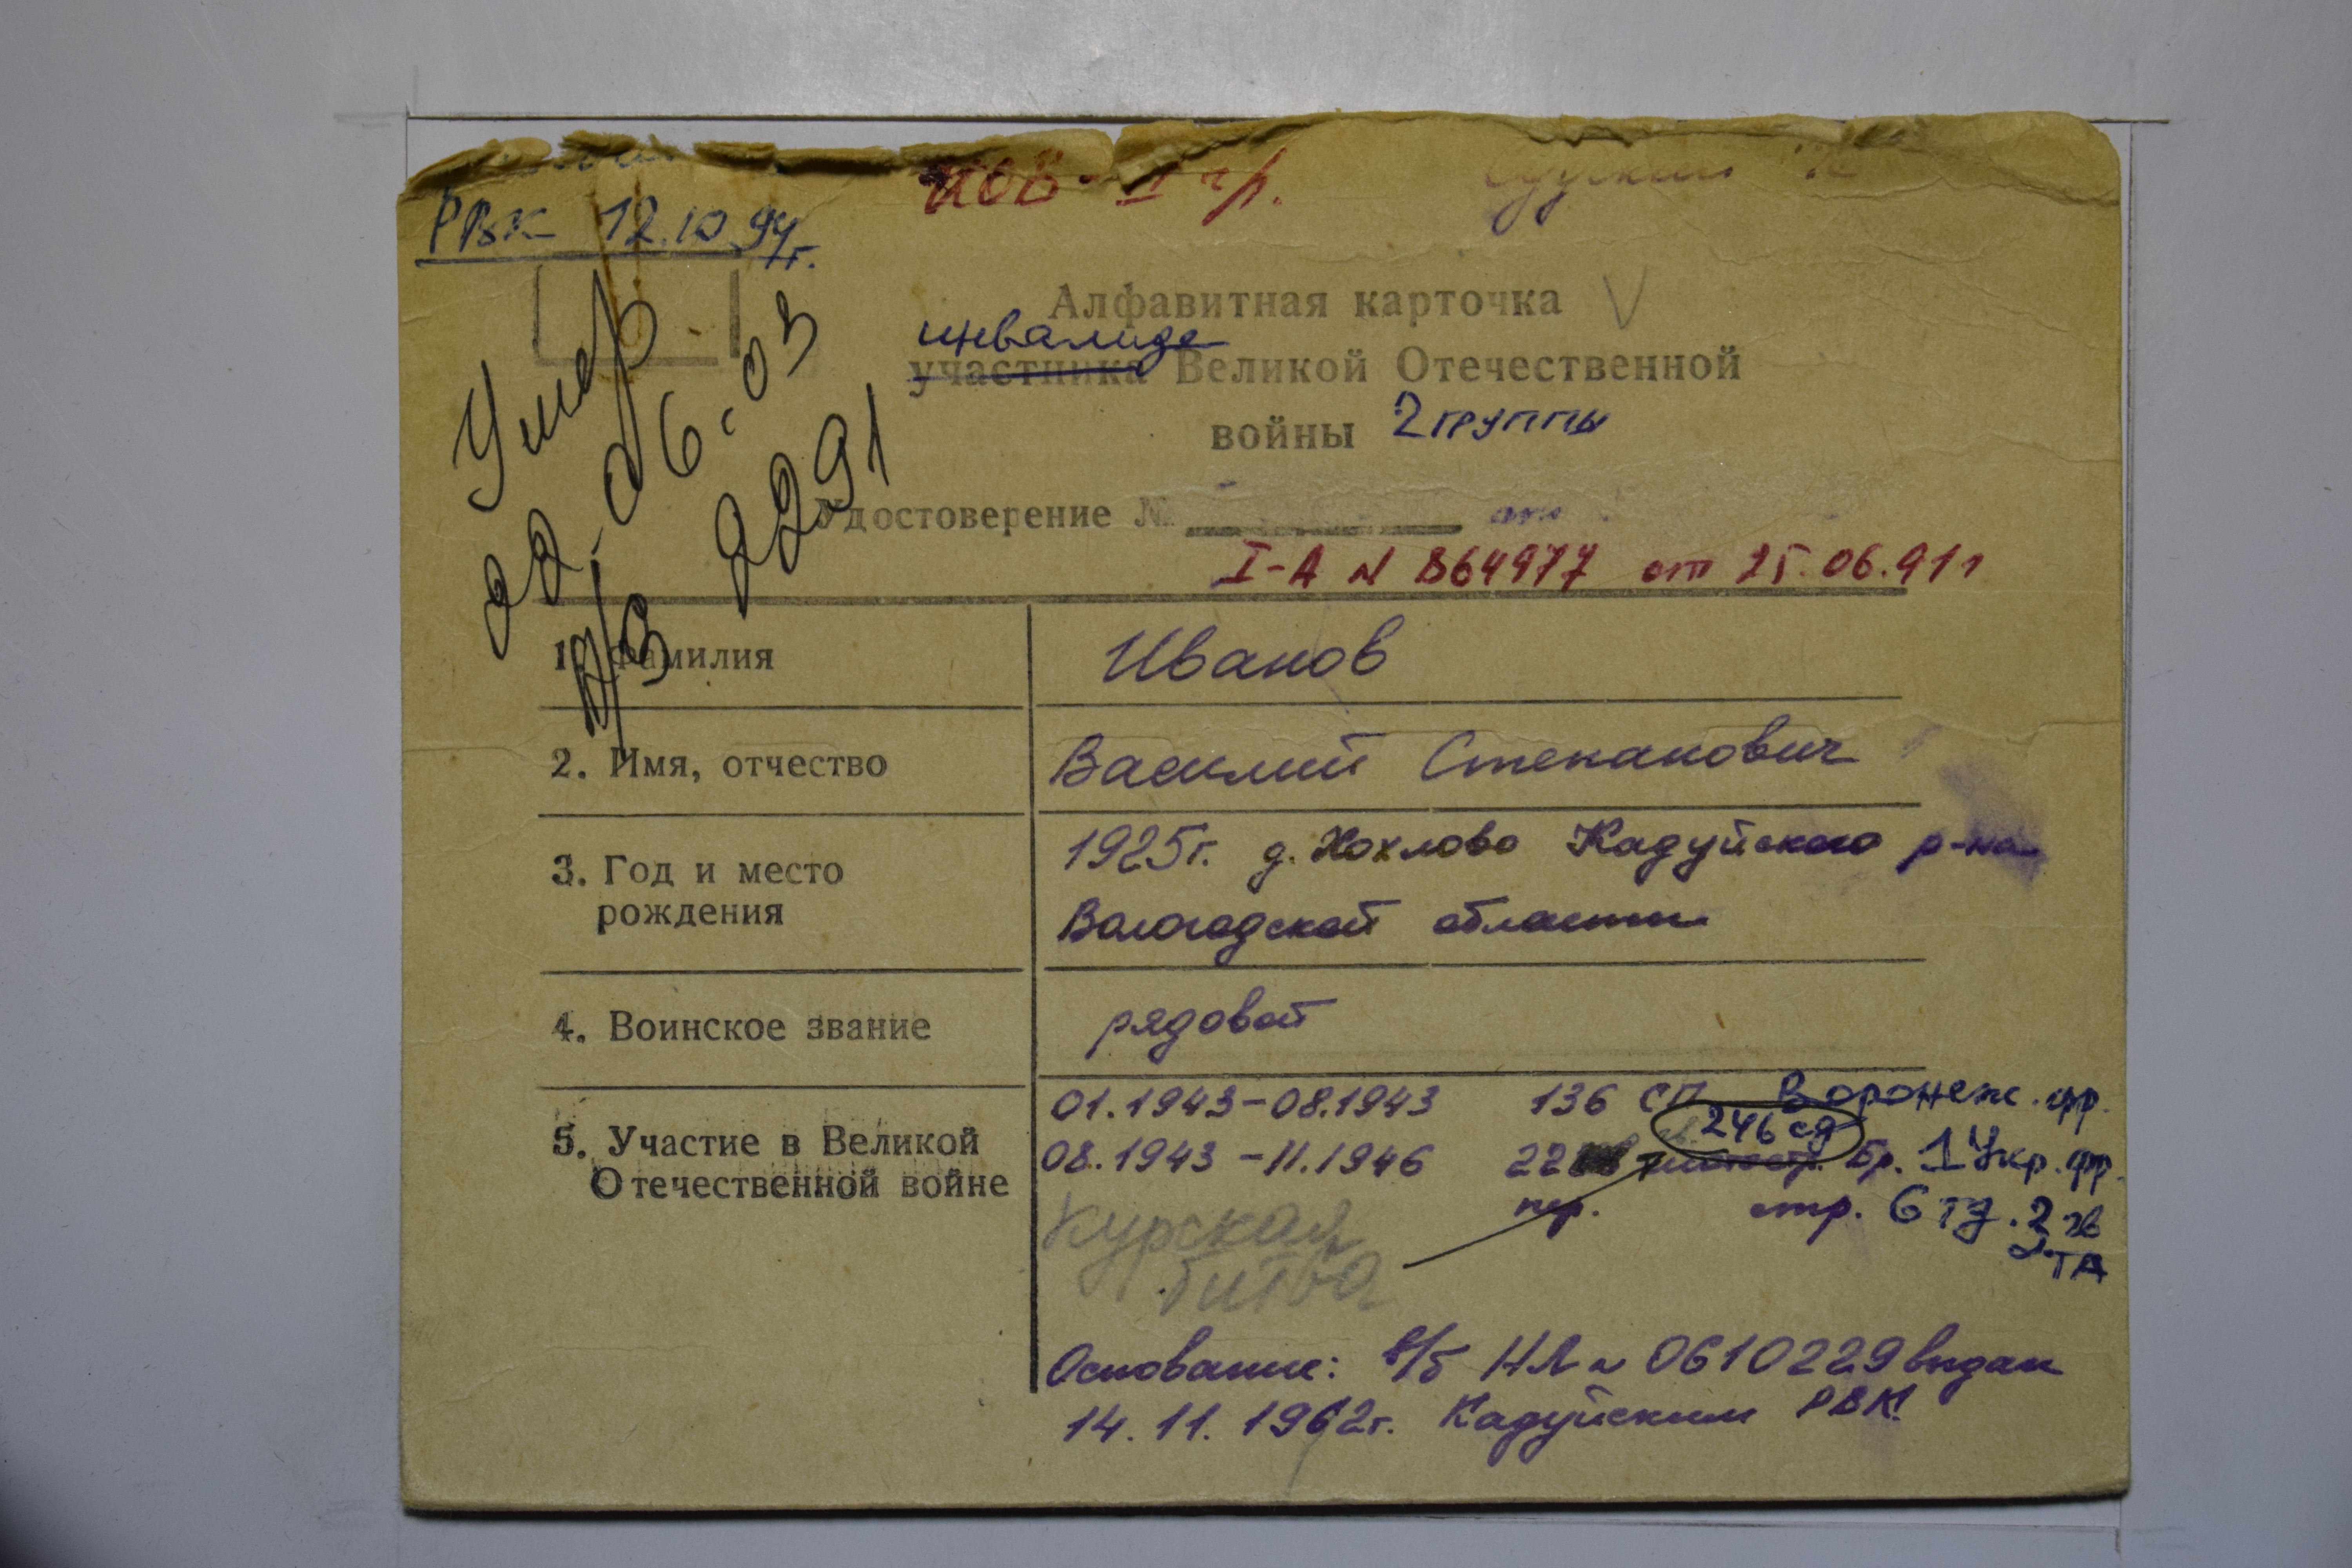 РВК 12.10.94г.
ИОВ - I гр.
Умер
22.06.03
а/з 2291
Алфавитная карточка V
инвалида
участника Великой Отечественной
войны 2 группы
Удостоверение №
I-А № 864977 от 25.06.91г
1. Фамилия Иванов
2. Имя, отчество Василий Степанович
3. Год и место 1925г. д. Хохлово Кадуйского р-на
рождения Вологодской области
4. Воинское звание рядовой
01.1943-08.1943 136 СП Воронеж. фр.
246 сд
5. Участие в Великой 08.1943-11.1946 22 Бр. 1 Укр. фр.
Отечественной войне стр. 6 тд. 2
ТА
Курская
битва
Основание: в/б НЛ № 0610229 выдан
14.11.1962г. Кадуйским РВК